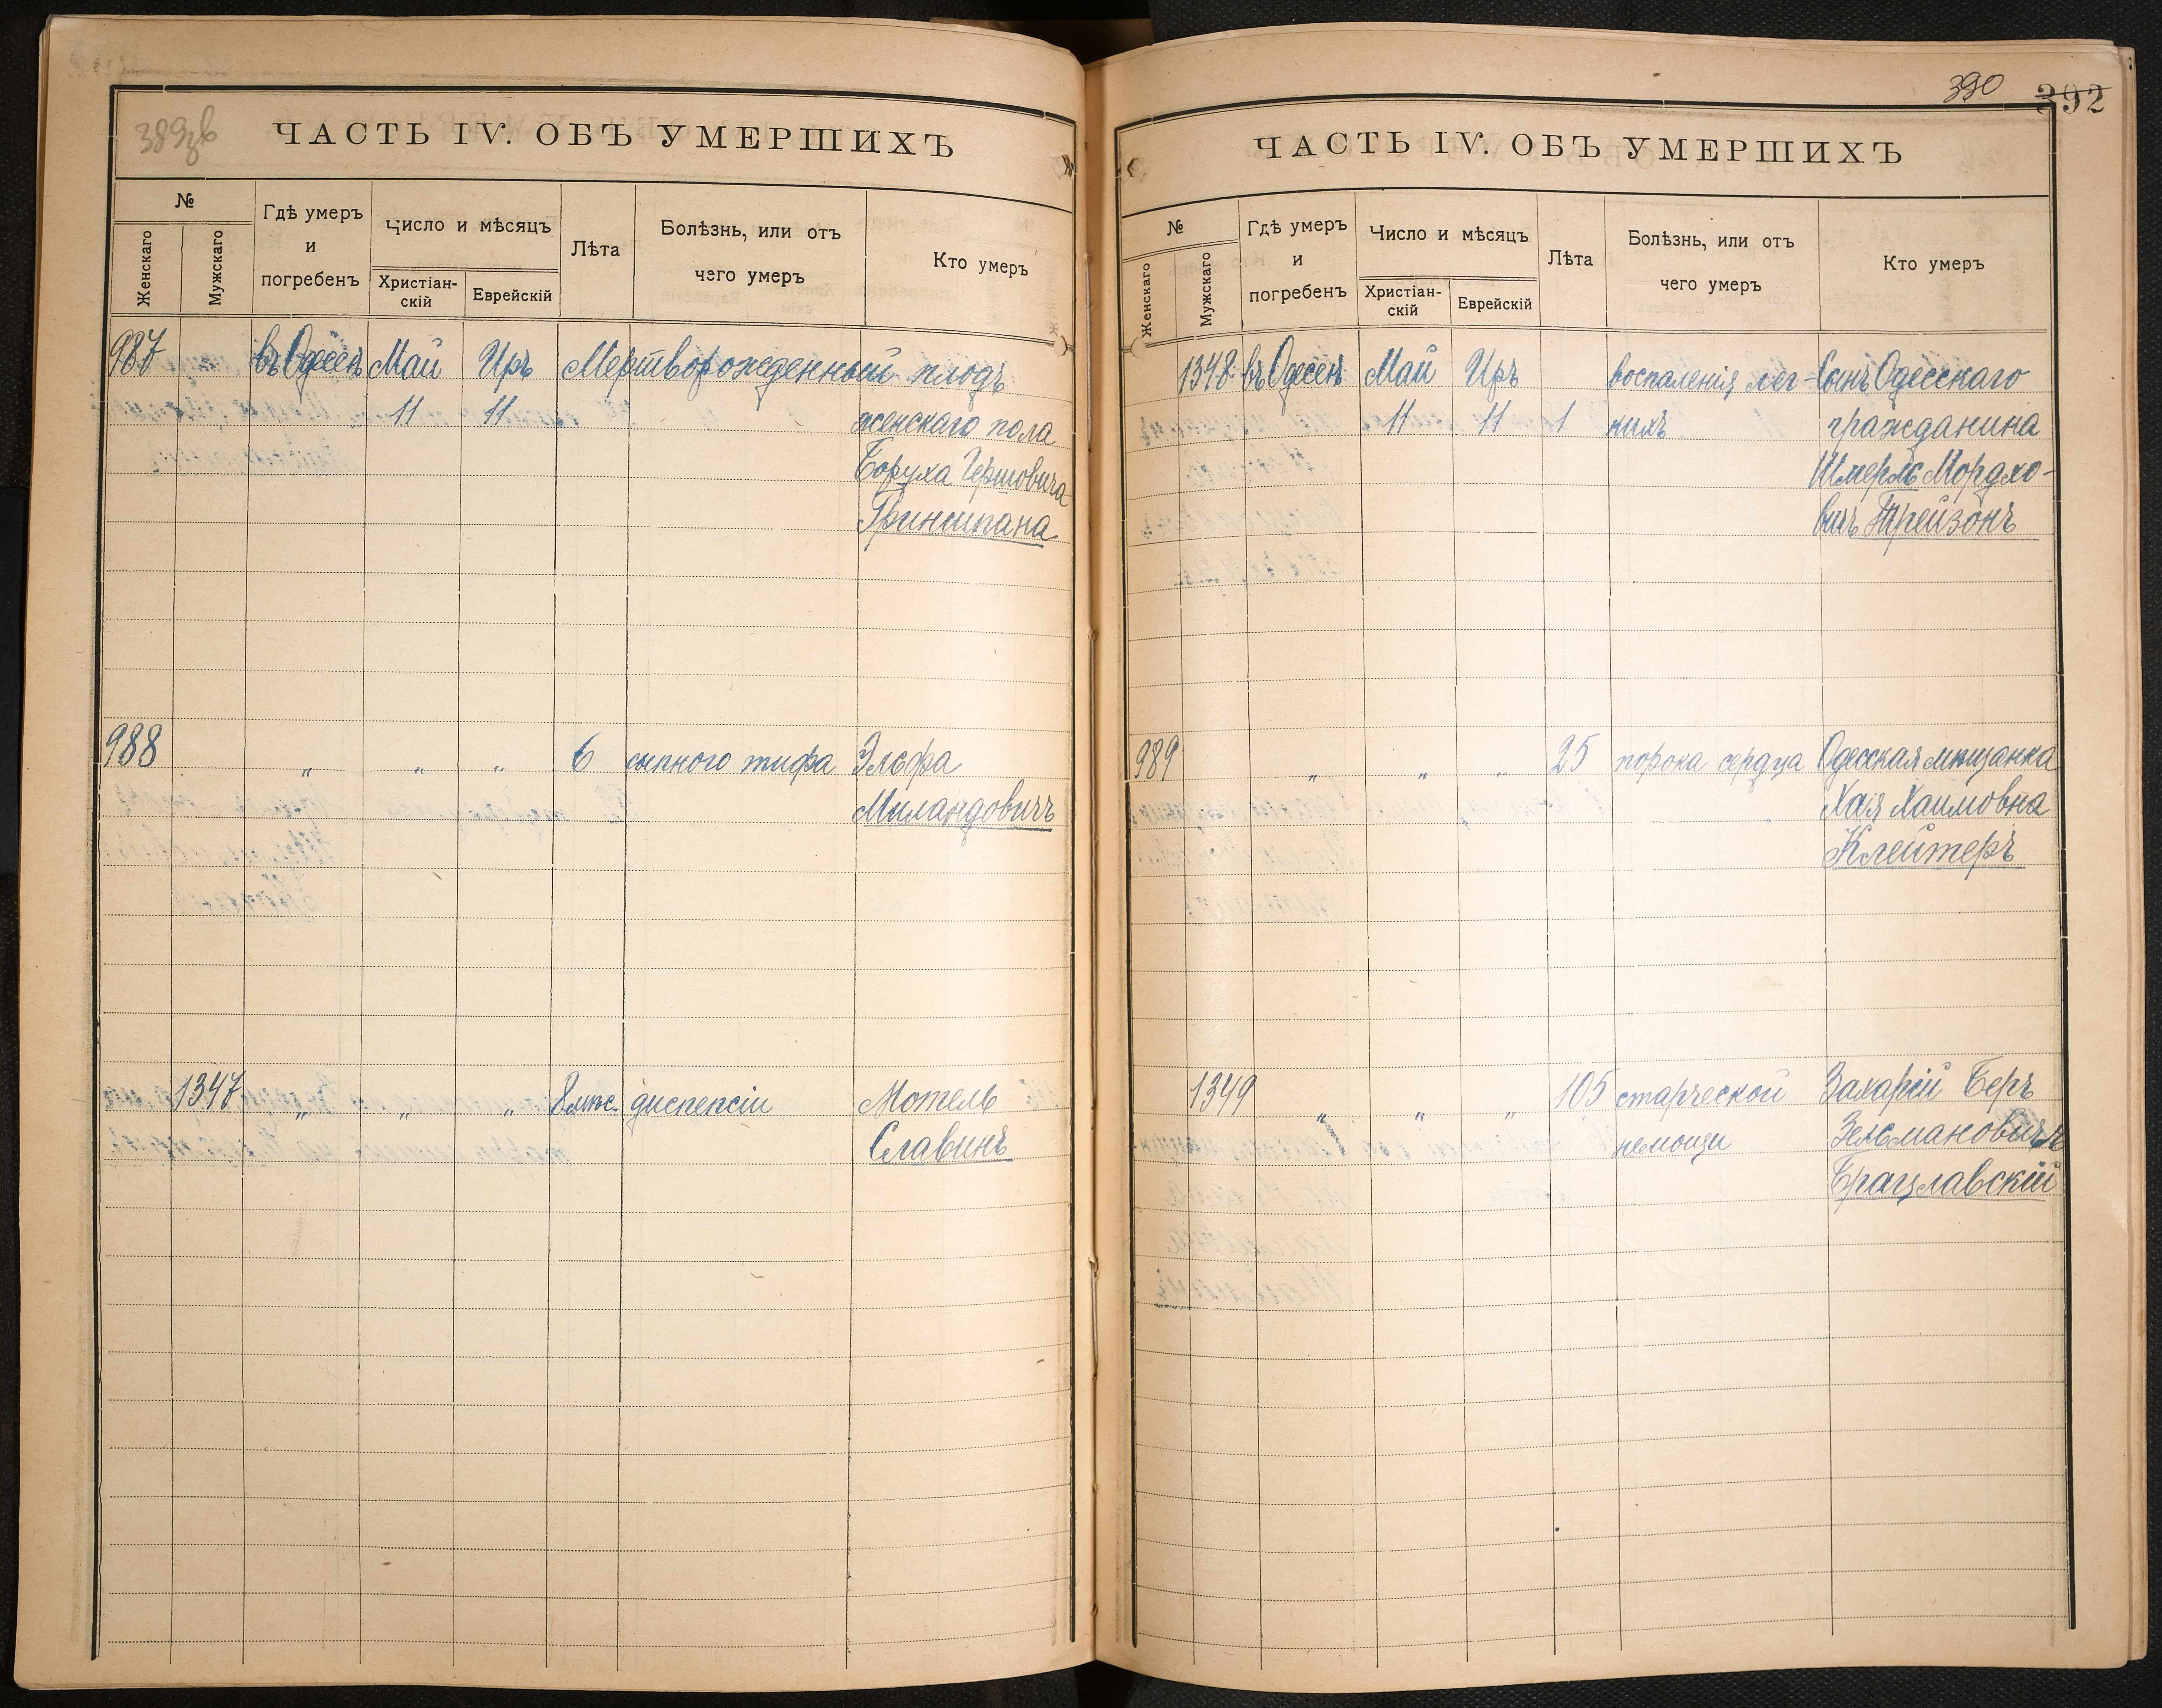 389об
ЧАСТЬ IV. ОБЪ УМЕРШИХЪ
№
Женскаго
Мужскаго
Гдѣ умеръ
и
погребенъ
Число и мѣсяцъ
Христіан-
скій
Еврейскій
Лѣта
Болѣзнь, или отъ
чего умеръ
Кто умеръ
987 въ Одессѣ Май Иръ Мертворожденный плодъ
11 11 женскаго пола
Боруха Гершовича
Гриншпана
988 " " " 6 сыпного тифа Эльфа
Миландовичъ
1347 " " " 8 мѣс. диспепсіи Мотель
Славинъ
390
392
ЧАСТЬ IV. ОБЪ УМЕРШИХЪ
№
Женскаго
Мужскаго
Гдѣ умеръ
и
погребенъ
Число и мѣсяцъ
Христіан-
скій
Еврейскій
Лѣта
Болѣзнь, или отъ
чего умеръ
Кто умеръ
1348 въ Одессѣ Май Иръ воспаленія лег- Сынъ Одесскаго
11 11 1 кихъ гражданина
Шмерль Мордхо-
вичъ Трейзонъ
989 " " " 25 порока сердца Одесская мѣщанка
Хая Хаимовна
Клейтеръ
1349 " " " 105 старческой Захарій Беръ
немощи Зельмановичъ
Брацлавскій